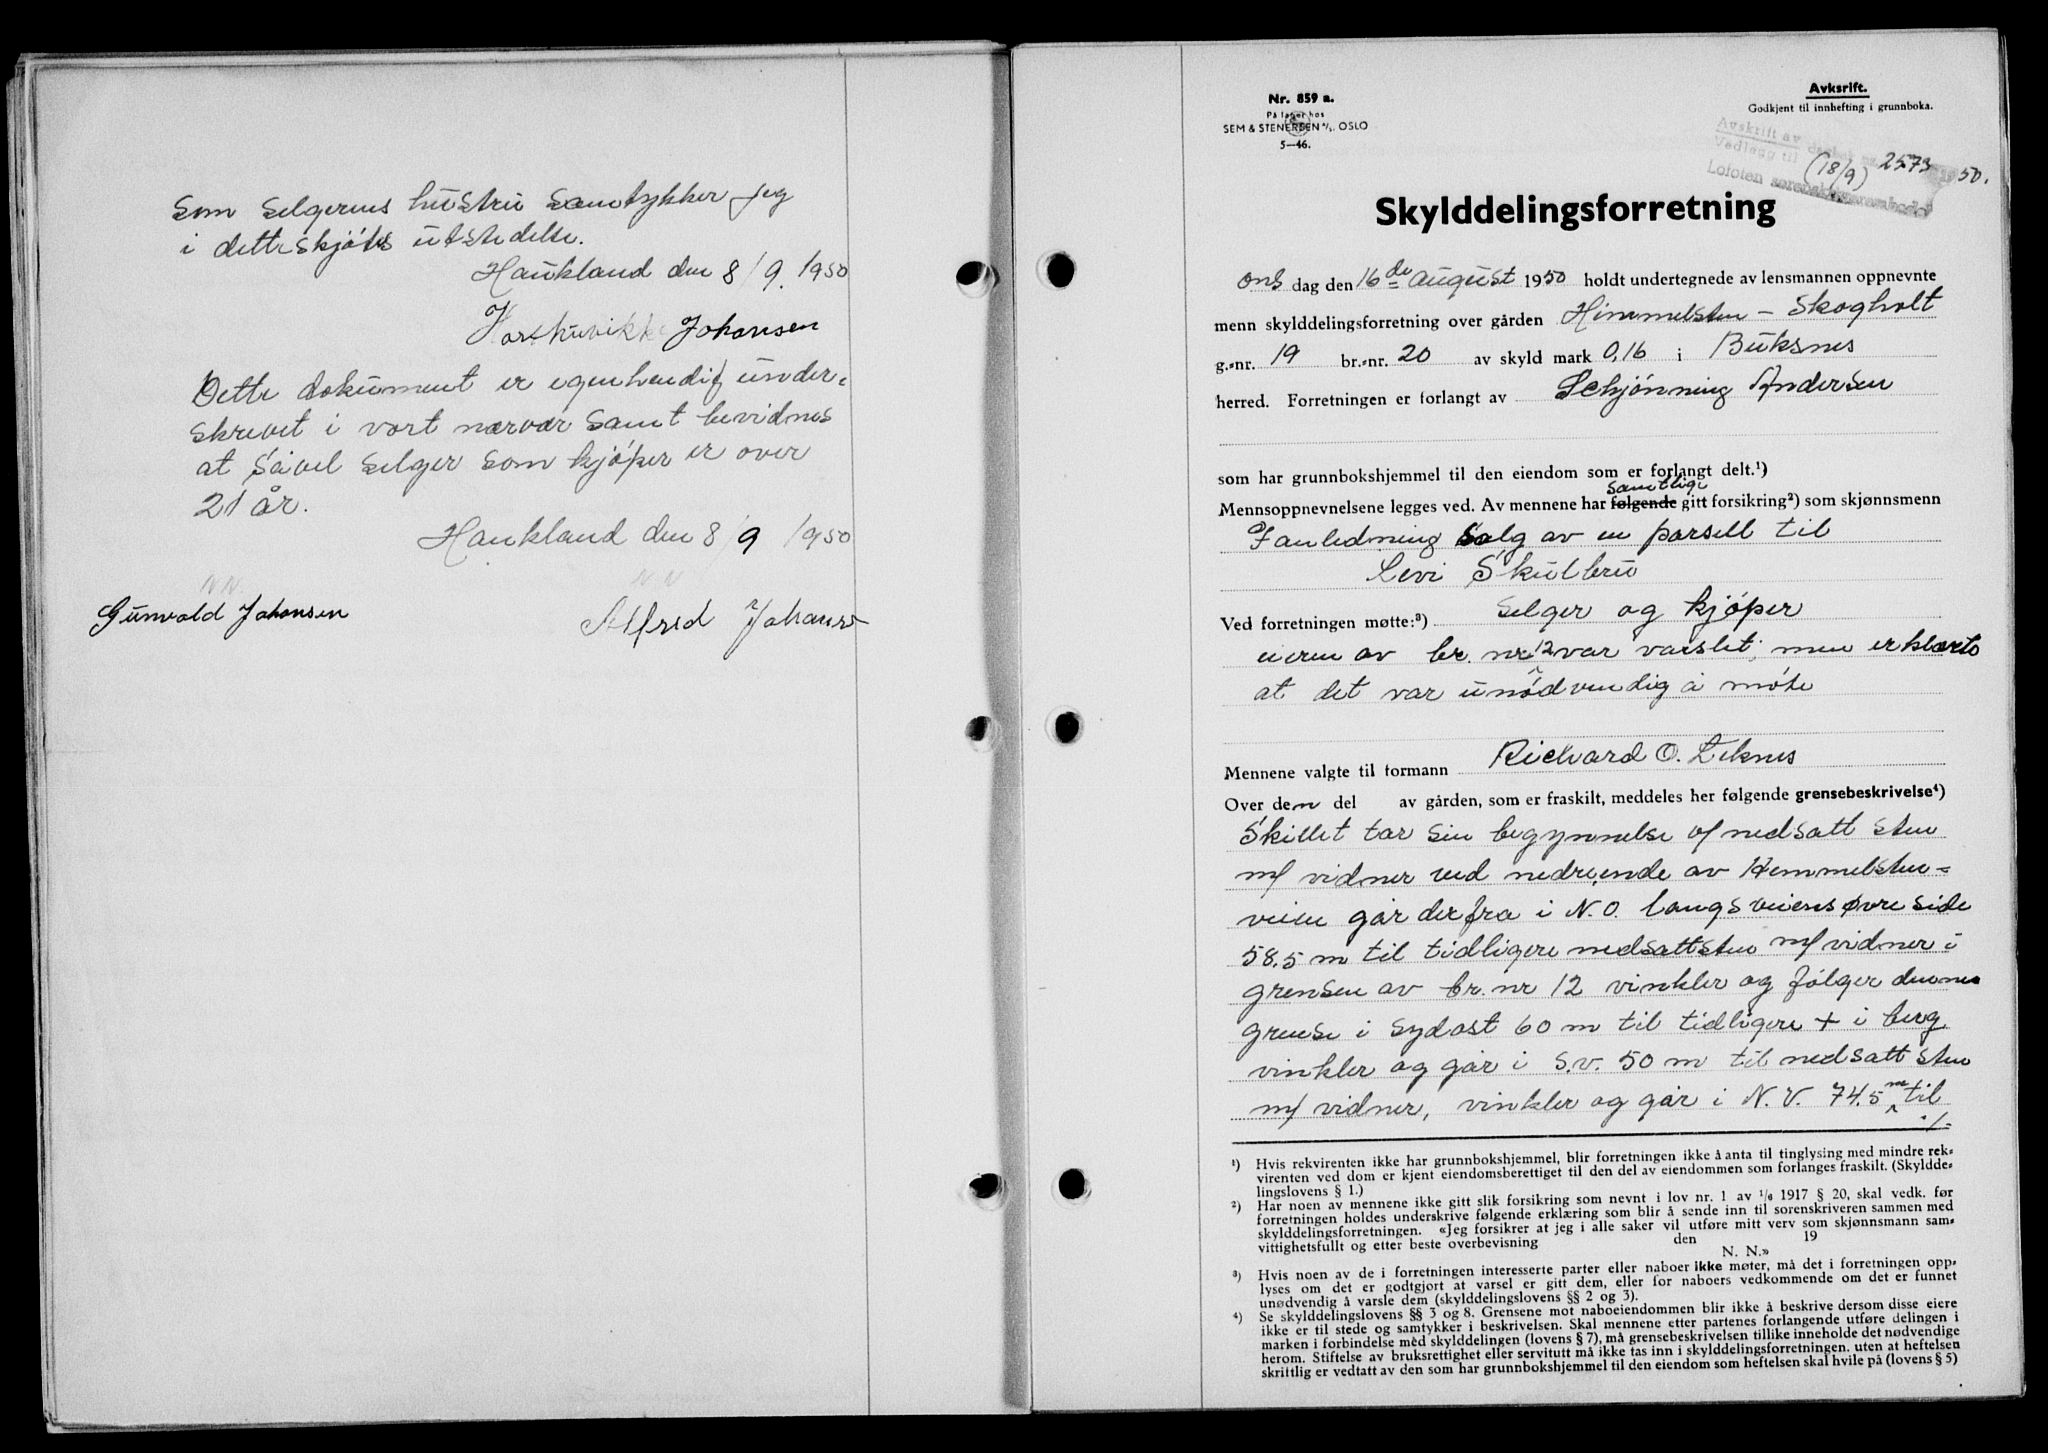 Som selgerens hustru samtykker jeg
i dette skjøtes utstedelse.
Haukland den 8/9. 1950
Johansen
Dette dokument er egenhendig under-
skrevet i vort nærvær samt bevidnes
at såvel selger som kjøper er over
21 år.
Haukland den 8/9 1950
N.N. N.N
Gunvald Johansen Alfred Johansen
Nr. 859 a.
På lager hos
SEM & STENERSEN A/S. OSLO
5—46.
Avksrift.
Godkjent til innhefting i grunnboka.
Avskrift av dagbok nr. 2573 1950.
Vedlegg til (18/9)
Lofoten sorenskriverembede
Skylddelingsforretning
ons dag den 16de august 1950 holdt undertegnede av lensmannen oppnevnte
menn skylddelingsforretning over gården Himmelsten – Skogholt
g.-nr. 19 br.-nr. 20 av skyld mark 0,16 i Buksnes
herred. Forretningen er forlangt av Schjønning Andersen
som har grunnbokshjemmel til den eiendom som er forlangt delt.¹)
samtlige
Mennsoppnevnelsene legges ved. Av mennene har følgende gitt forsikring²) som skjønnsmenn
I anledning salg av en parsell til
Levi Skulbru
Ved forretningen møtte:³) Selger og kjøper
eieren av br. nr. 12 var varslet, men erklærte
at det var unødvendig å møte
Mennene valgte til formann Richard O. Leknes
Over den del av gården, som er fraskilt, meddeles her følgende grensebeskrivelse⁴)
Skillet tar sin begynnelse af nedsatt sten
m/ vidner ved nedre ende av Hemmelsten-
veien går derfra i N.O. langs veiens øvre side
58.5 m til tidligere nedsatt sten m/ vidner i
grensen av br. nr 12 vinkler og følger dennes
grense i sydost 60 m til tidligere + i berg
vinkler og går i S.V. 50 m til nedsatt sten
m/ vidner, vinkler og går i N.V. 74.5 m til
./.
¹) Hvis rekvirenten ikke har grunnbokshjemmel, blir forretningen ikke å anta til tinglysing med mindre rek-
virenten ved dom er kjent eiendomsberettiget til den del av eiendommen som forlanges fraskilt. (Skyldde-
lingslovens § 1.)
²) Har noen av mennene ikke gitt slik forsikring som nevnt i lov nr. 1 av 1/6 1917 § 20, skal vedk. før
forretningen holdes underskrive følgende erklæring som blir å sende inn til sorenskriveren sammen med
skylddelingsforretningen. «Jeg forsikrer at jeg i alle saker vil utføre mitt verv som skjønnsmann sam-
vittighetsfullt og etter beste overbevisning den 19
N. N.»
³) Hvis noen av de i forretningen interesserte parter eller naboer ikke møter, må det i forretningen opp-
lyses om det er godtgjort at varsel er gitt dem, eller for naboers vedkommende om det er funnet
unødvendig å varsle dem (skylddelingslovens §§ 2 og 3).
⁴) Se skylddelingslovens §§ 3 og 8. Grensene mot naboeiendommen blir ikke å beskrive dersom disse eiere
ikke er til stede og samtykker i beskrivelsen. Skal mennene etter partenes forlangende utføre delingen i
marken i forbindelse med skylddelingen (lovens § 7), må grensebeskrivelsen tillike inneholde det nødvendige
herom. Stiftelse av bruksrettighet eller servitutt må ikke tas inn i skylddelingsforretningen. uten at heftelsen
skriftlig er vedtatt av den som har grunnbokshjemmel til den eiendom som heftelsen skal hvile på (lovens § 5)